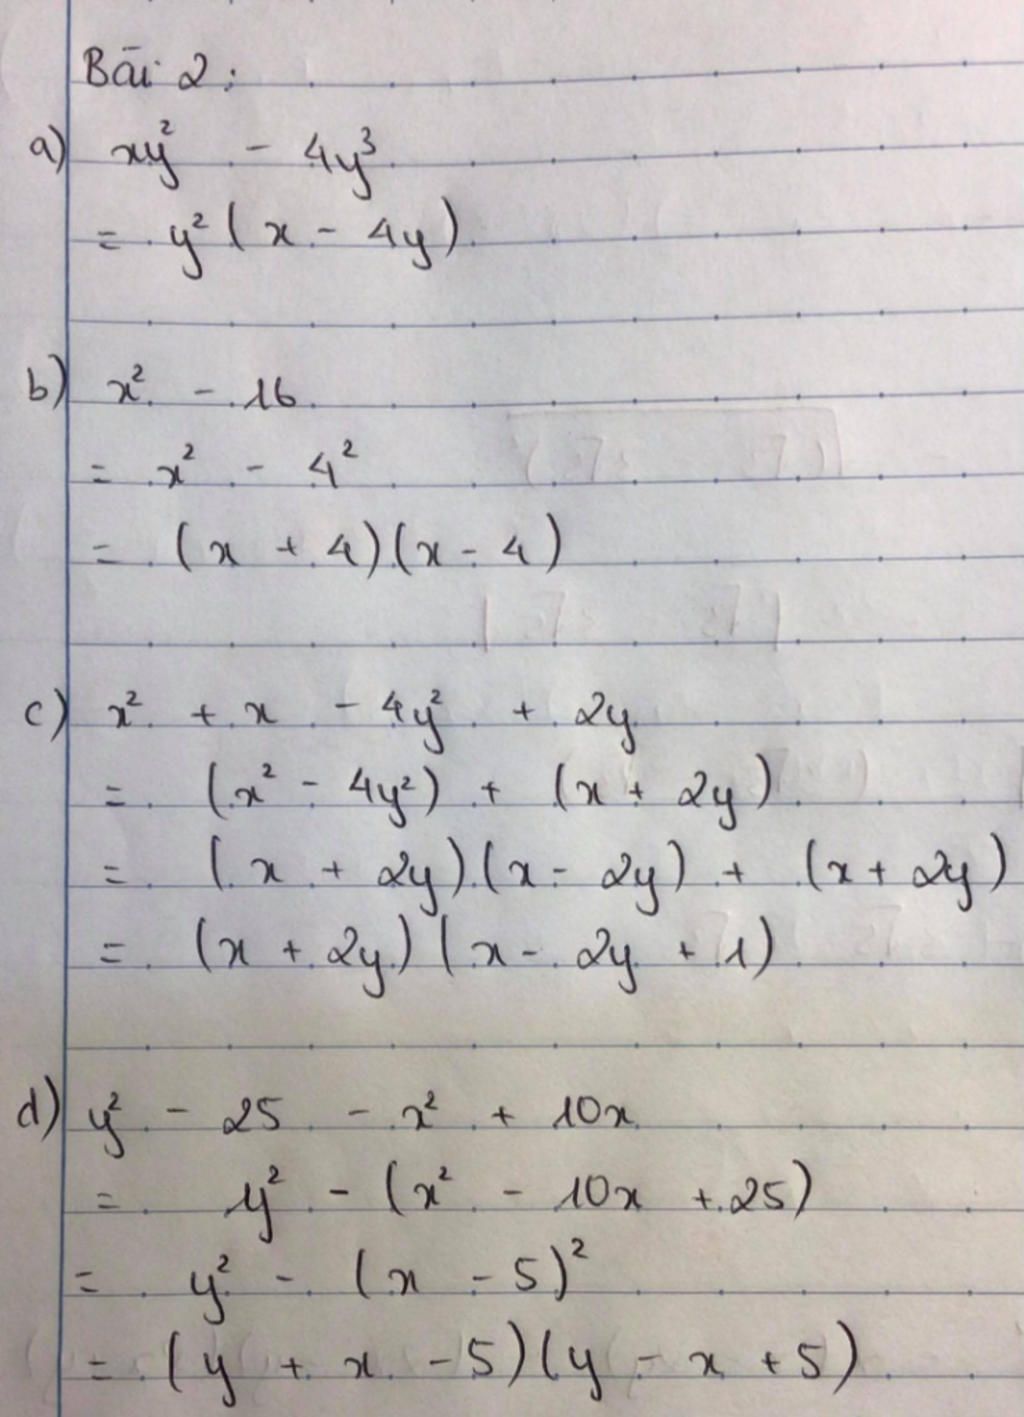 Bài 2:
a) xy² - 4y³
= y² (x - 4y)
b) x² - 16
= x² - 4²
= (x + 4)(x - 4)
c) x² + x - 4y² + 2y
= (x² - 4y²) + (x + 2y)
= (x + 2y)(x - 2y) + (x + 2y)
= (x + 2y)(x - 2y + 1)
d) y² - 25 - x² + 10x
= y² - (x² - 10x + 25)
= y² - (x - 5)²
= (y + x - 5)(y - x + 5)